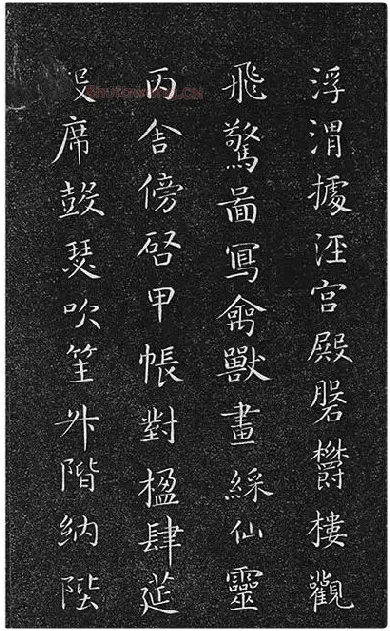 浮渭據涇宮殿磐欝樓觀
飛驚啚寫禽獸畫綵仙靈
丙舍傍啓甲帳對楹肆莚
設席鼓瑟吹笙升階納陛